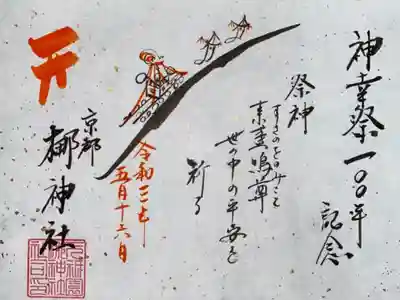 神幸祭一〇〇年
記念
祭神
すさのをのみこと
素盞嗚尊
世の中の平安を
祈る
令和三年
五月十六日
京都
梛神社
元祇園
梛神社
之印